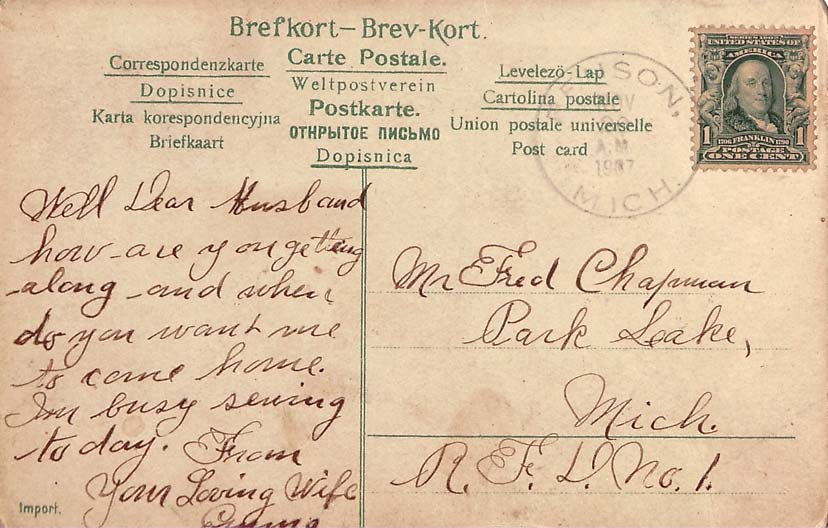 Brefkort–Brev-Kort.
Correspondenzkarte
Carte Postale.
Levelező-Lap
Dopisnice
Weltpostverein
Cartolina postale
Karta korespondencyjna
Postkarte.
Union postale universelle
Briefkaart
ОТКРЫТОЕ ПИСЬМО
Post card
Dopisnica
SERIES 1902
UNITED STATES OF
AMERICA
1706 FRANKLIN 1790
1 POSTAGE 1
ONE CENT
NOV
A.M.
1907
MICH.
Well Dear Husband
how are you getting
along and when
do you want me
to come home.
Im busy sewing
to day. From
Your Loving Wife
Emma
Mr Fred Chapman
Park Lake,
Mich.
R. F. D. No. 1.
Import.